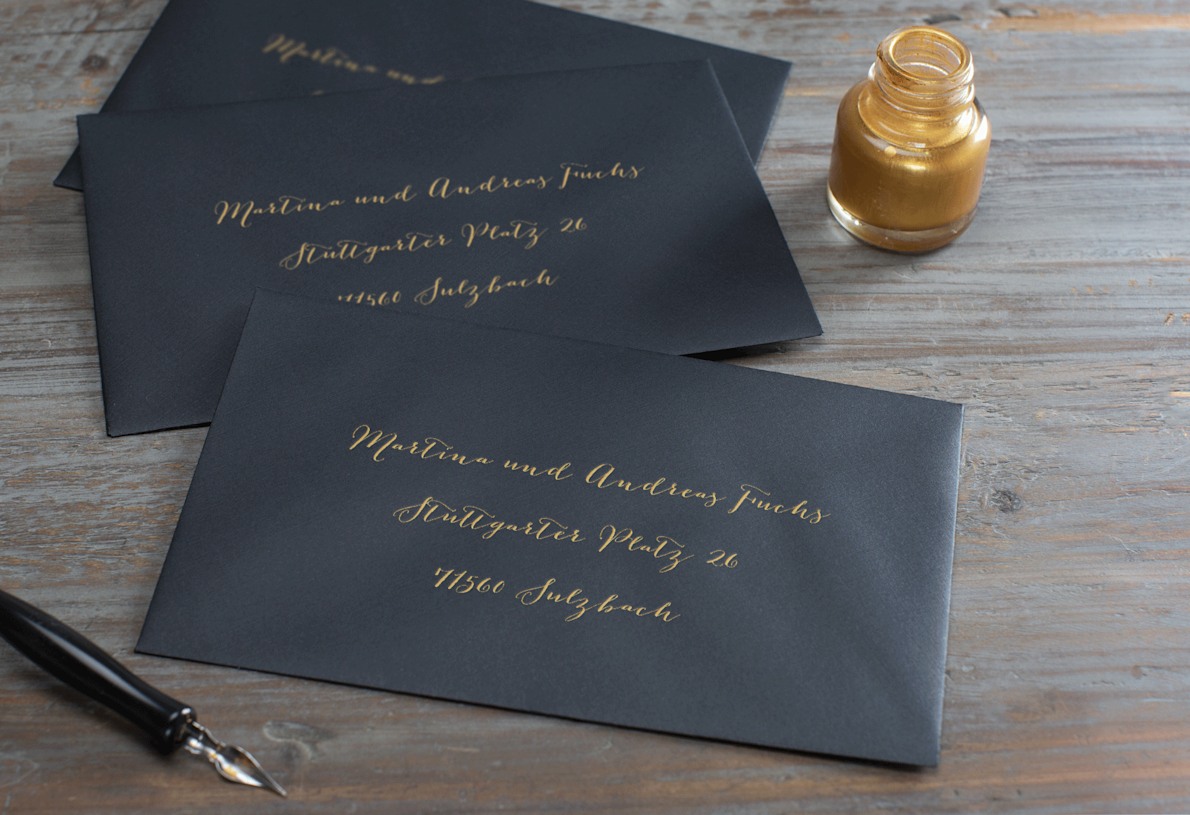 Martina und
Martina und Andreas Fuchs
Stuttgarter Platz 26
71560 Sulzbach
Martina und Andreas Fuchs
Stuttgarter Platz 26
71560 Sulzbach